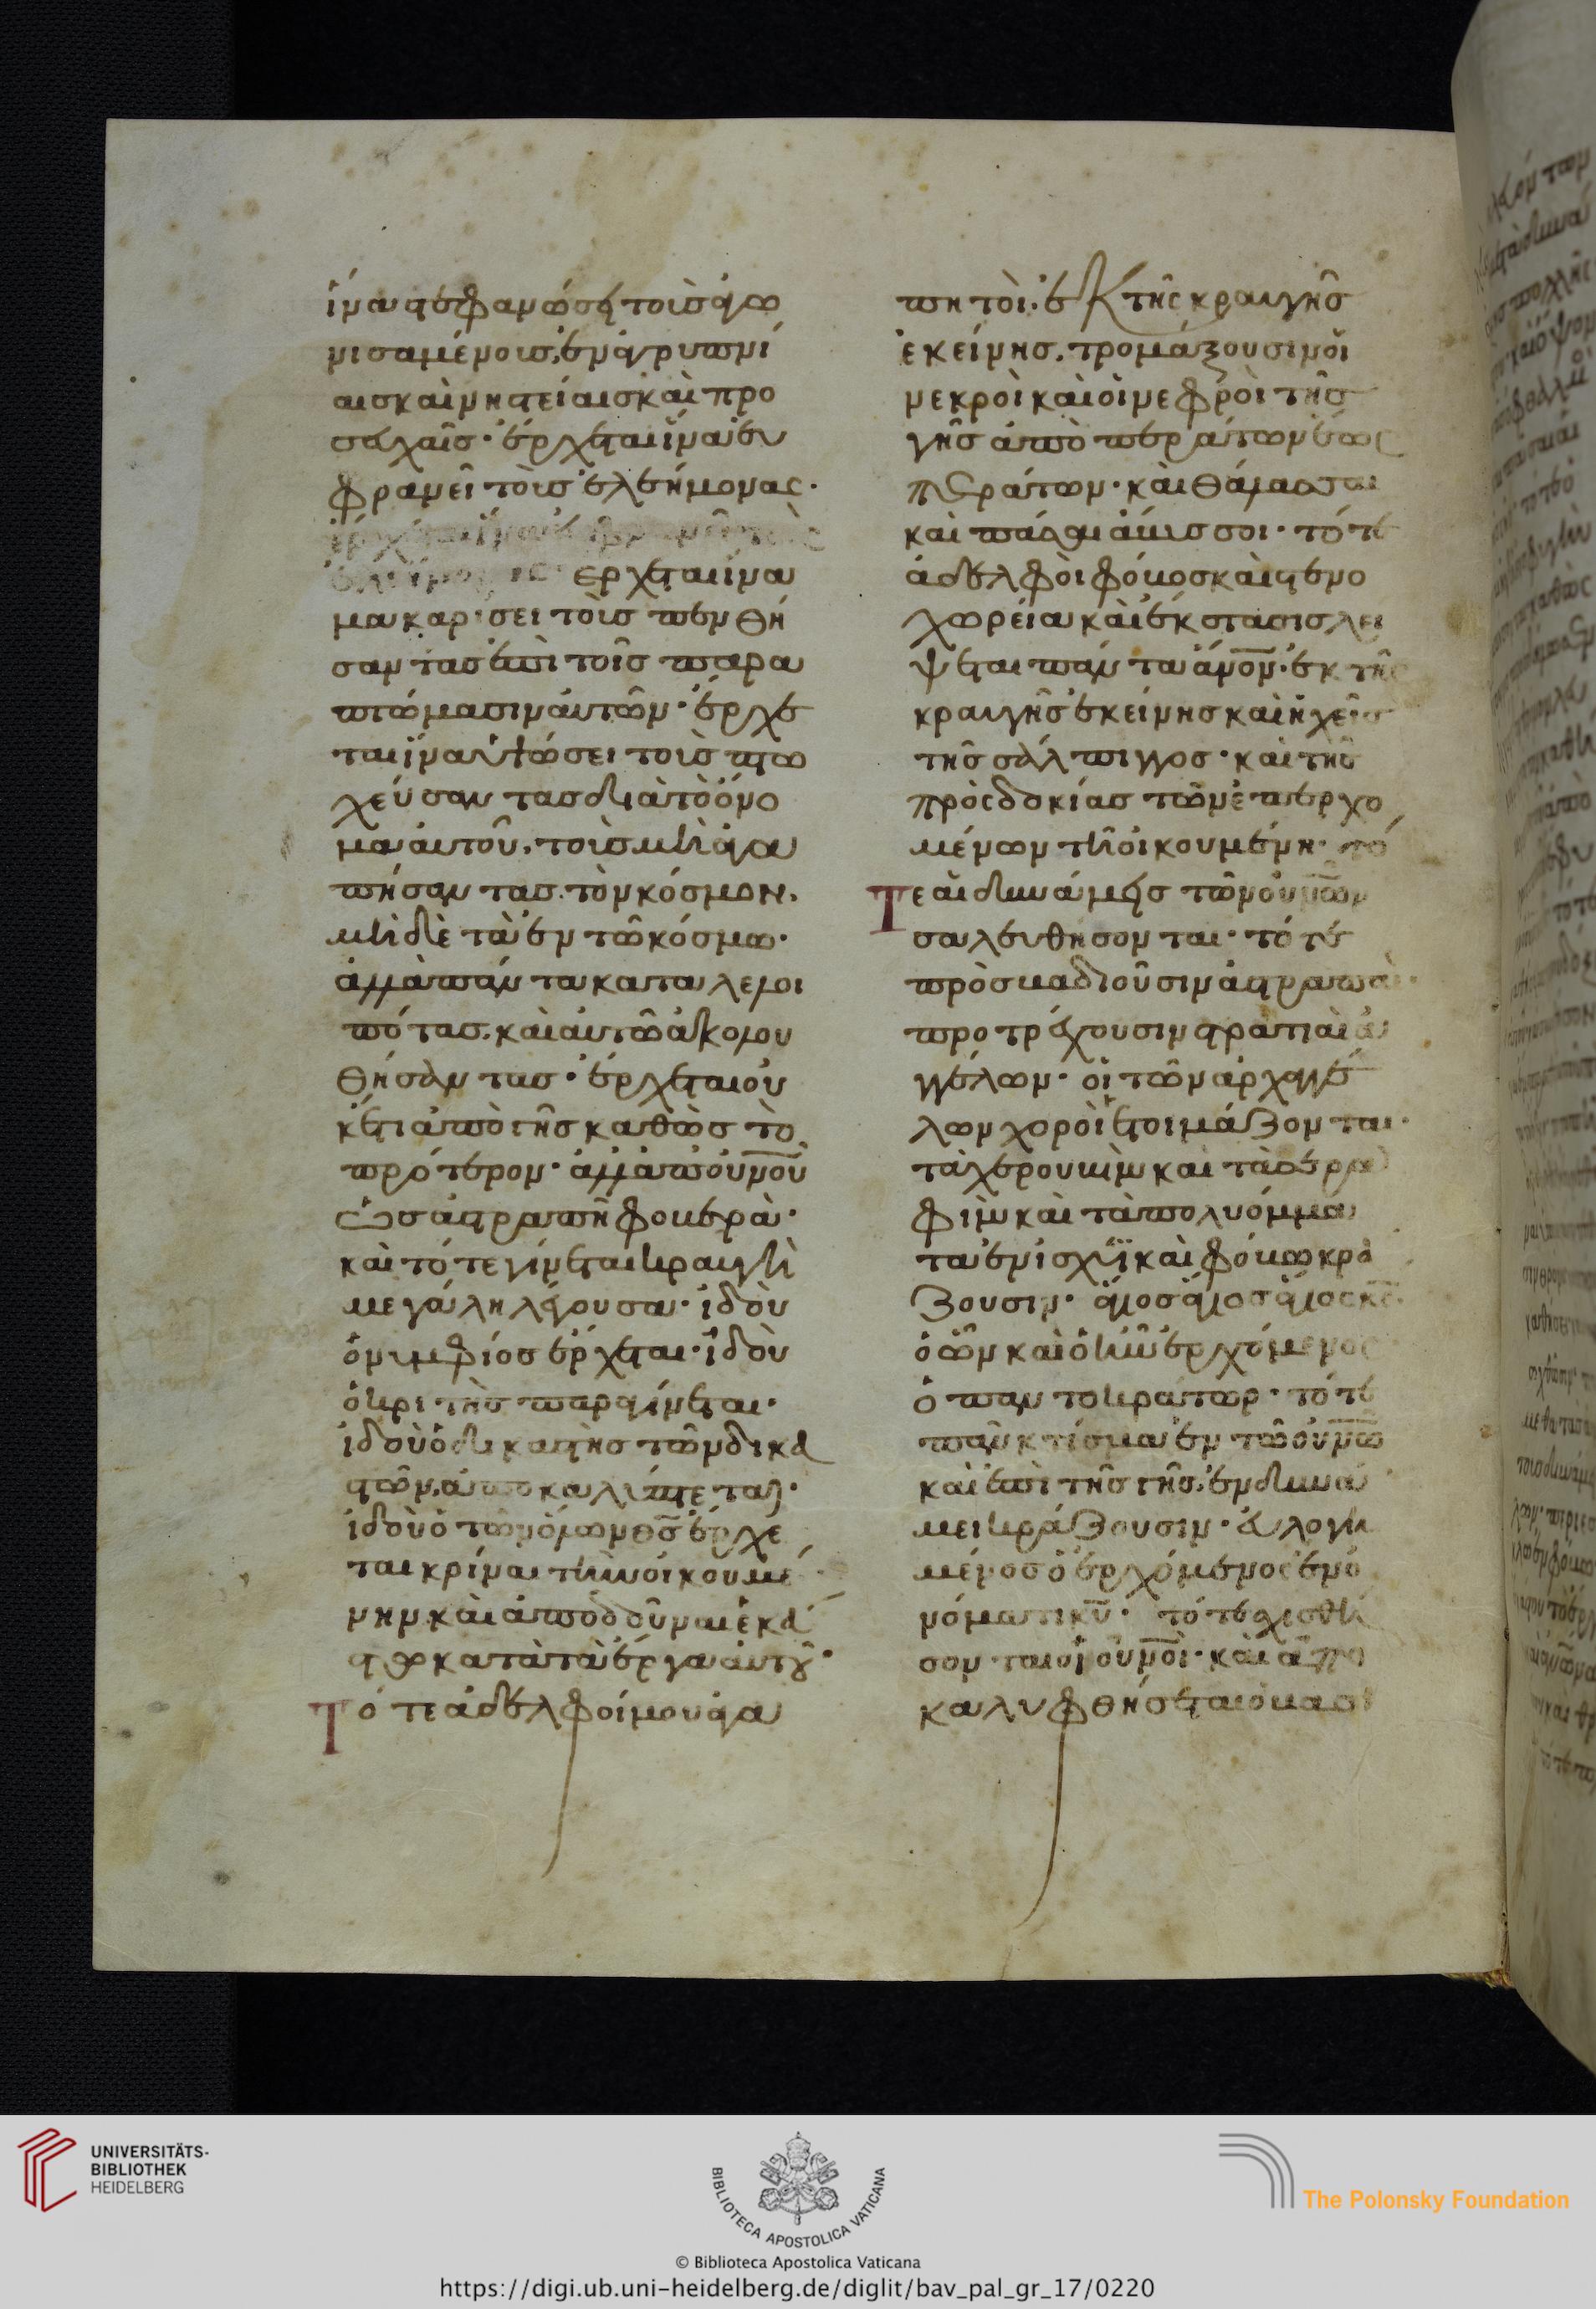 ἵνα στεφανώσῃ τοὺς ἀγω
νισαμένους, ἐν ἀγρυπνί
αις καὶ νηστείαις καὶ προ
σευχαῖς· ἔρχεται ἵνα εὐ
φρανεῖ τοὺς ἐλεήμονας·
ἔρχεται ἵνα εὐφρανεῖ τοὺς
ἐλεήμονας· ἔρχεται ἵνα
μακαρίσει τοὺς πενθή
σαντας ἐπὶ τοῖς παρα
πτώμασιν αὐτῶν· ἔρχε
ται ἵνα ὑψώσει τοὺς πτω
χεύσαντας διὰ τὸ ὄνο
μα αὐτοῦ· τοὺς μὴ ἀγα
πήσαντας τὸν κόσμον,
μὴ δὲ τὰ ἐν τῶ κόσμω·
ἀλλὰ πάντα καταλελοι
πότας, καὶ αὐτῶ ἀκολου
θήσαντας· ἔρχεται οὐ
κέτι ἀπὸ γῆς καθὼς τὸ
πρότερον· ἀλλ' ἀπ' οὐνοῦ
ὡς ἀστραπὴ φοβερὰ·
καὶ τότε γίνεται κραυγὴ
μεγάλη λέγουσα· ἰδοὺ
ὁ νυμφίος ἔρχεται· ἰδοὺ
ὁ κριτὴς παραγίνεται·
ἰδοὺ ὁ δικαστὴς τῶν δικα
στῶν, ἀποκαλύπτεται·
ἰδοὺ ὁ τῶν ὅλων θς ἔρχε
ται κρίναι τὴν οἰκουμέ
νην καὶ ἀποδοῦναι ἑκά
στω κατὰ τὰ ἔργα αὐτοῦ·
Τότε ἀδελφοί μου ἀγα
πητοὶ· ἐκ τῆς κραυγῆς
ἐκείνης, τρομάξουσιν οἱ
νεκροὶ καὶ οἱ νεφροὶ τῆς
γῆς ἀπὸ περάτων ἕως
περάτων· καὶ θάλασσαι
καὶ πάσαι ἄβισσοι· τότε
ἀδελφοὶ φόβος καὶ στενο
χωρεία καὶ ἔκστασις λει
ψεται πάντα ἄνον· ἐκ τῆς
κραυγῆς ἐκείνης καὶ ἠχεῖς
τῆς σάλπιγγος· καὶ τῆς
πρὸς δοκίας τῶν ἐπερχο
μένων τῆ οἰκουμένη· τό
Τε αἱ δυνάμεις τῶν οὐνῶν
σαλευθήσονται· τότε
πρὸς βαδιοῦσιν ἀστραπαὶ·
προτρέχουσιν στρατιαὶ ἀ
γγέλων· οἱ τῶν ἀρχαγγέ
λων χοροὶ ἑτοιμάζονται·
τὰ χερουβὶμ καὶ τὰ σερα
φὶμ καὶ τὰ πολυόμμα
τα ἐν ἰσχύϊ καὶ φόβω κρά
ζουσιν· ἅγιος ἅγιος ἅγιος κς·
ὁ ὢν καὶ ὁ ἦν ἐρχόμενος
ὁ παντοκράτωρ· τότε
πᾶν κτίσμα ἐν τῶ οὐνῶ
καὶ ἐπὶ τῆς γῆς, ἐν δυνά
μει κράζουσιν· εὐλογη
μένος ὁ ἐρχόμενος ἐν ὀ
νόματι κυ· τότε σχισθή
σονται οἱ οὐνοὶ· καὶ ἀπο
καλυφθήσεται ὁ βασι
UNIVERSITÄTS-
BIBLIOTHEK
HEIDELBERG
BIBLIOTECA APOSTOLICA VATICANA
The Polonsky Foundation
© Biblioteca Apostolica Vaticana
https://digi.ub.uni-heidelberg.de/diglit/bav_pal_gr_17/0220